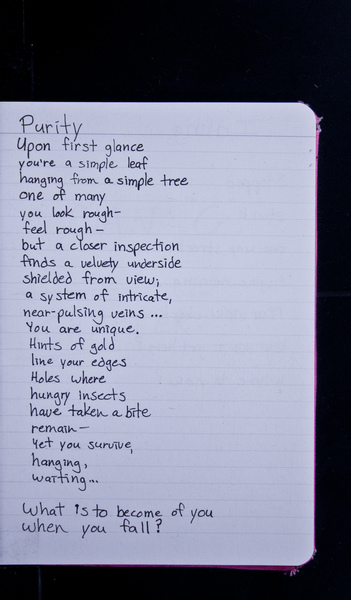 Purity
Upon first glance
you're a simple leaf
hanging from a simple tree
one of many
you look rough-
feel rough-
but a closer inspection
finds a velvety underside
shielded from view;
a system of intricate,
near-pulsing veins ...
You are unique.
Hints of gold
line your edges
Holes where
hungry insects
have taken a bite
remain-
Yet you survive,
hanging,
waiting...
What is to become of you
when you fall?